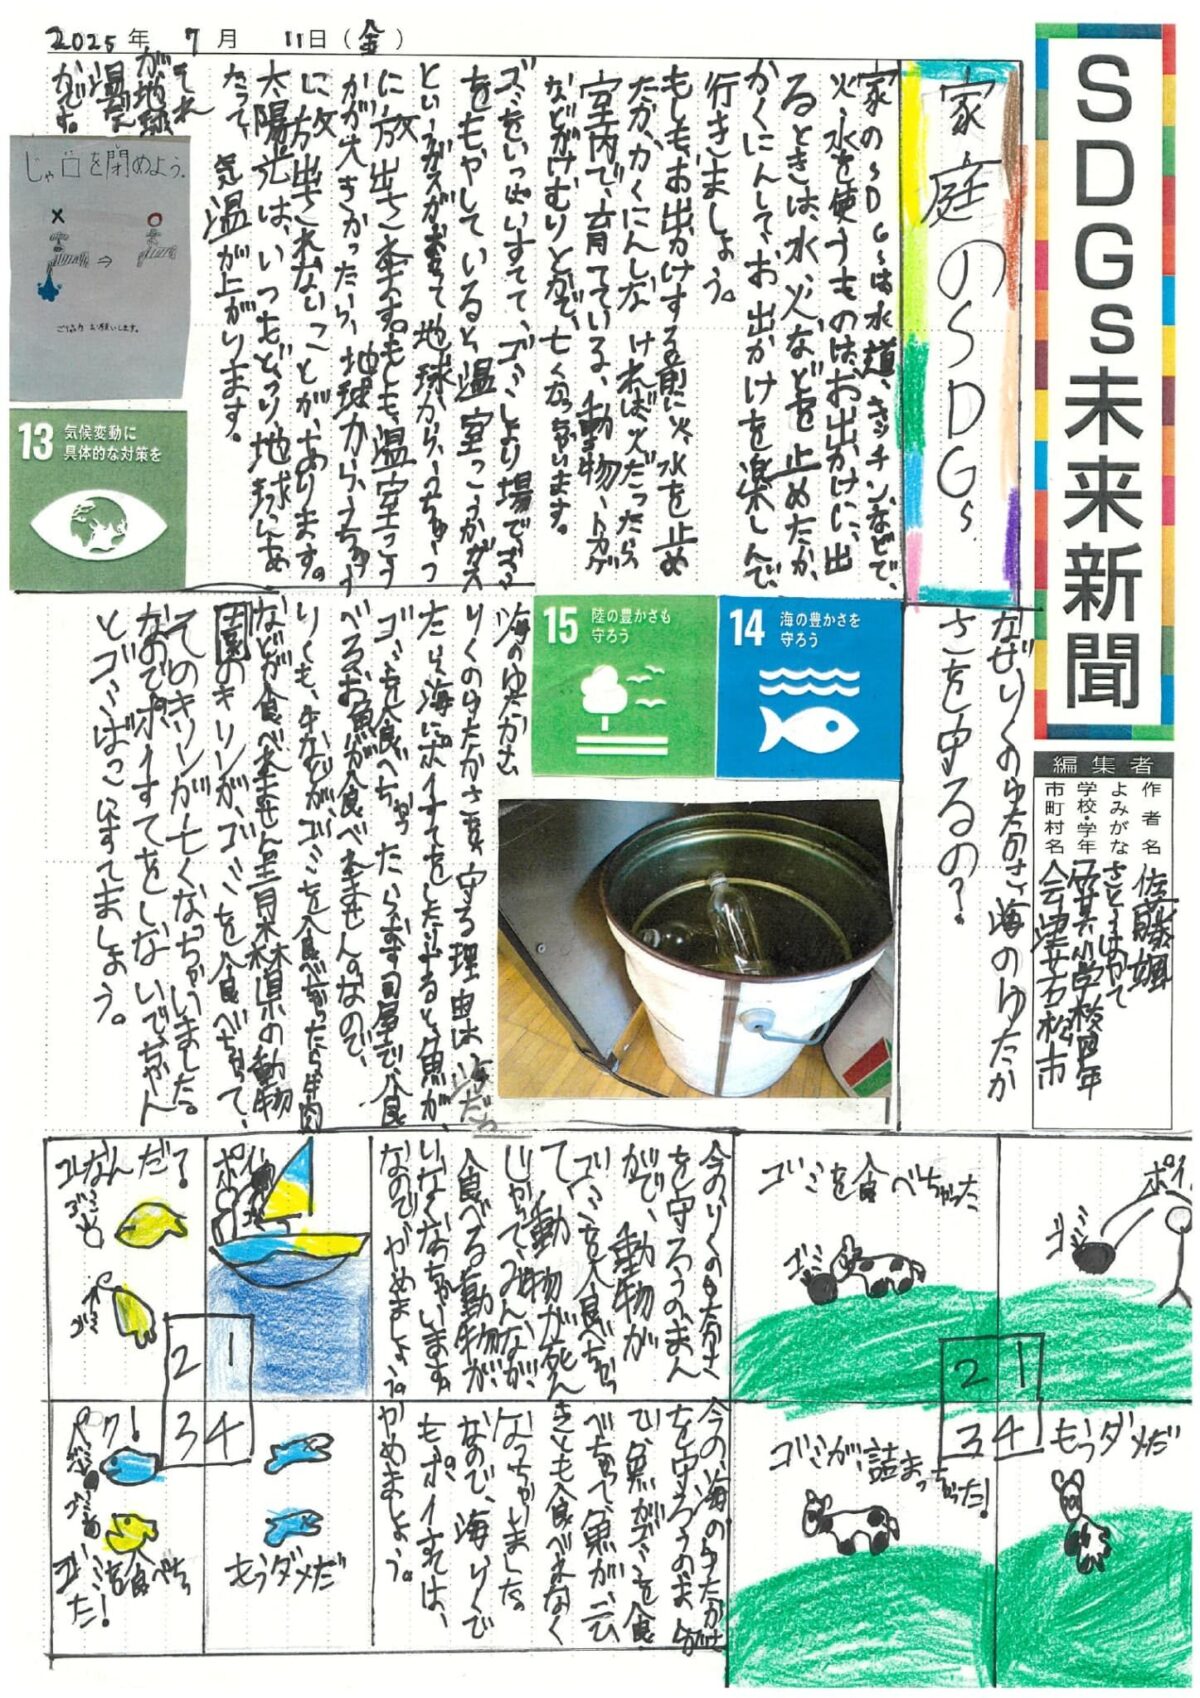 2025年 7月 11日(金)
SDGs未来新聞
編集者
作者名 佐藤颯
よみがな さとうはやて
学校・学年
市町村名 会津若松市
家庭のSDGs
家のSDGsは水道、キッチンなどで、
火、水を使うものは、お出かけに、出
るときは、水、火などを止めたか、
かくにんして、お出かけを楽しんで、
行きましょう。
もしも、お出かけする前に火、水を止め
たか、かくにんしなければ火だったら
室内で育てている、動物、トカゲ
などがけむりとかで、亡くなっちゃいます。
ゴミをいっぱいすてて、ゴミしょり場でゴミ
をもやしていると温室こうかガス
というガスがおきて地球から、うちゅう
に放出さ来ます。もしも、温室こう
かが大きかったら、地球から、うちゅう
に放出されないことが、あります。
太陽光は、いつもどうり、地球にあ
たって、気温が上がります。
それ
が地球
温だん
かです。
じゃ口を閉めよう。
× ○
⇒
ご協力お願いします。
13 気候変動に
具体的な対策を
なぜりくのゆたかさ、海のゆたか
さを守るの?
14 海の豊かさを
守ろう
15 陸の豊かさも
守ろう
海のゆたかさ
りくのゆたかさを、守る理由は海だっ
たら海にポイすてをしたりすると、魚が、
ゴミを食べちゃったらおすし屋で、食
べるお魚が食べ来ませんのなので、
りくも、牛などが、ゴミを食べちゃったら牛肉
などが食べ来ません
園のキリンが、ゴミを食べちゃって、
そのキリンが亡くなっちゃいました。
なのでポイすてをしないで、ちゃん
とゴミばこにすてましょう。
1 2 3 4
ポイ
ゴミ
ゴミを食べちゃった
ゴミ
ゴミが、詰まっちゃった!
もうダメだ
今の、りくのゆたかさ
を守ろうの、まん
がで、動物が
ゴミを食べちゃっ
て、動物が死ん
じゃって、みんなが、
食べる動物が、
いなくなっちゃいます。
なのでやめましょう。
今の、海のゆたかさ
を守ろうのまんが
で、魚がゴミを食
べちゃって、魚が、二ひ
きとも食べれなく
なっちゃいました。
なので、海、りくで
も、ポイすては、
やめましょう。
1 2 3 4
ポイ
コレなんだ?
ゴミ
ゴミ
パク!
ゴミ
ゴミを食べちゃっ
た!
もうダメだ